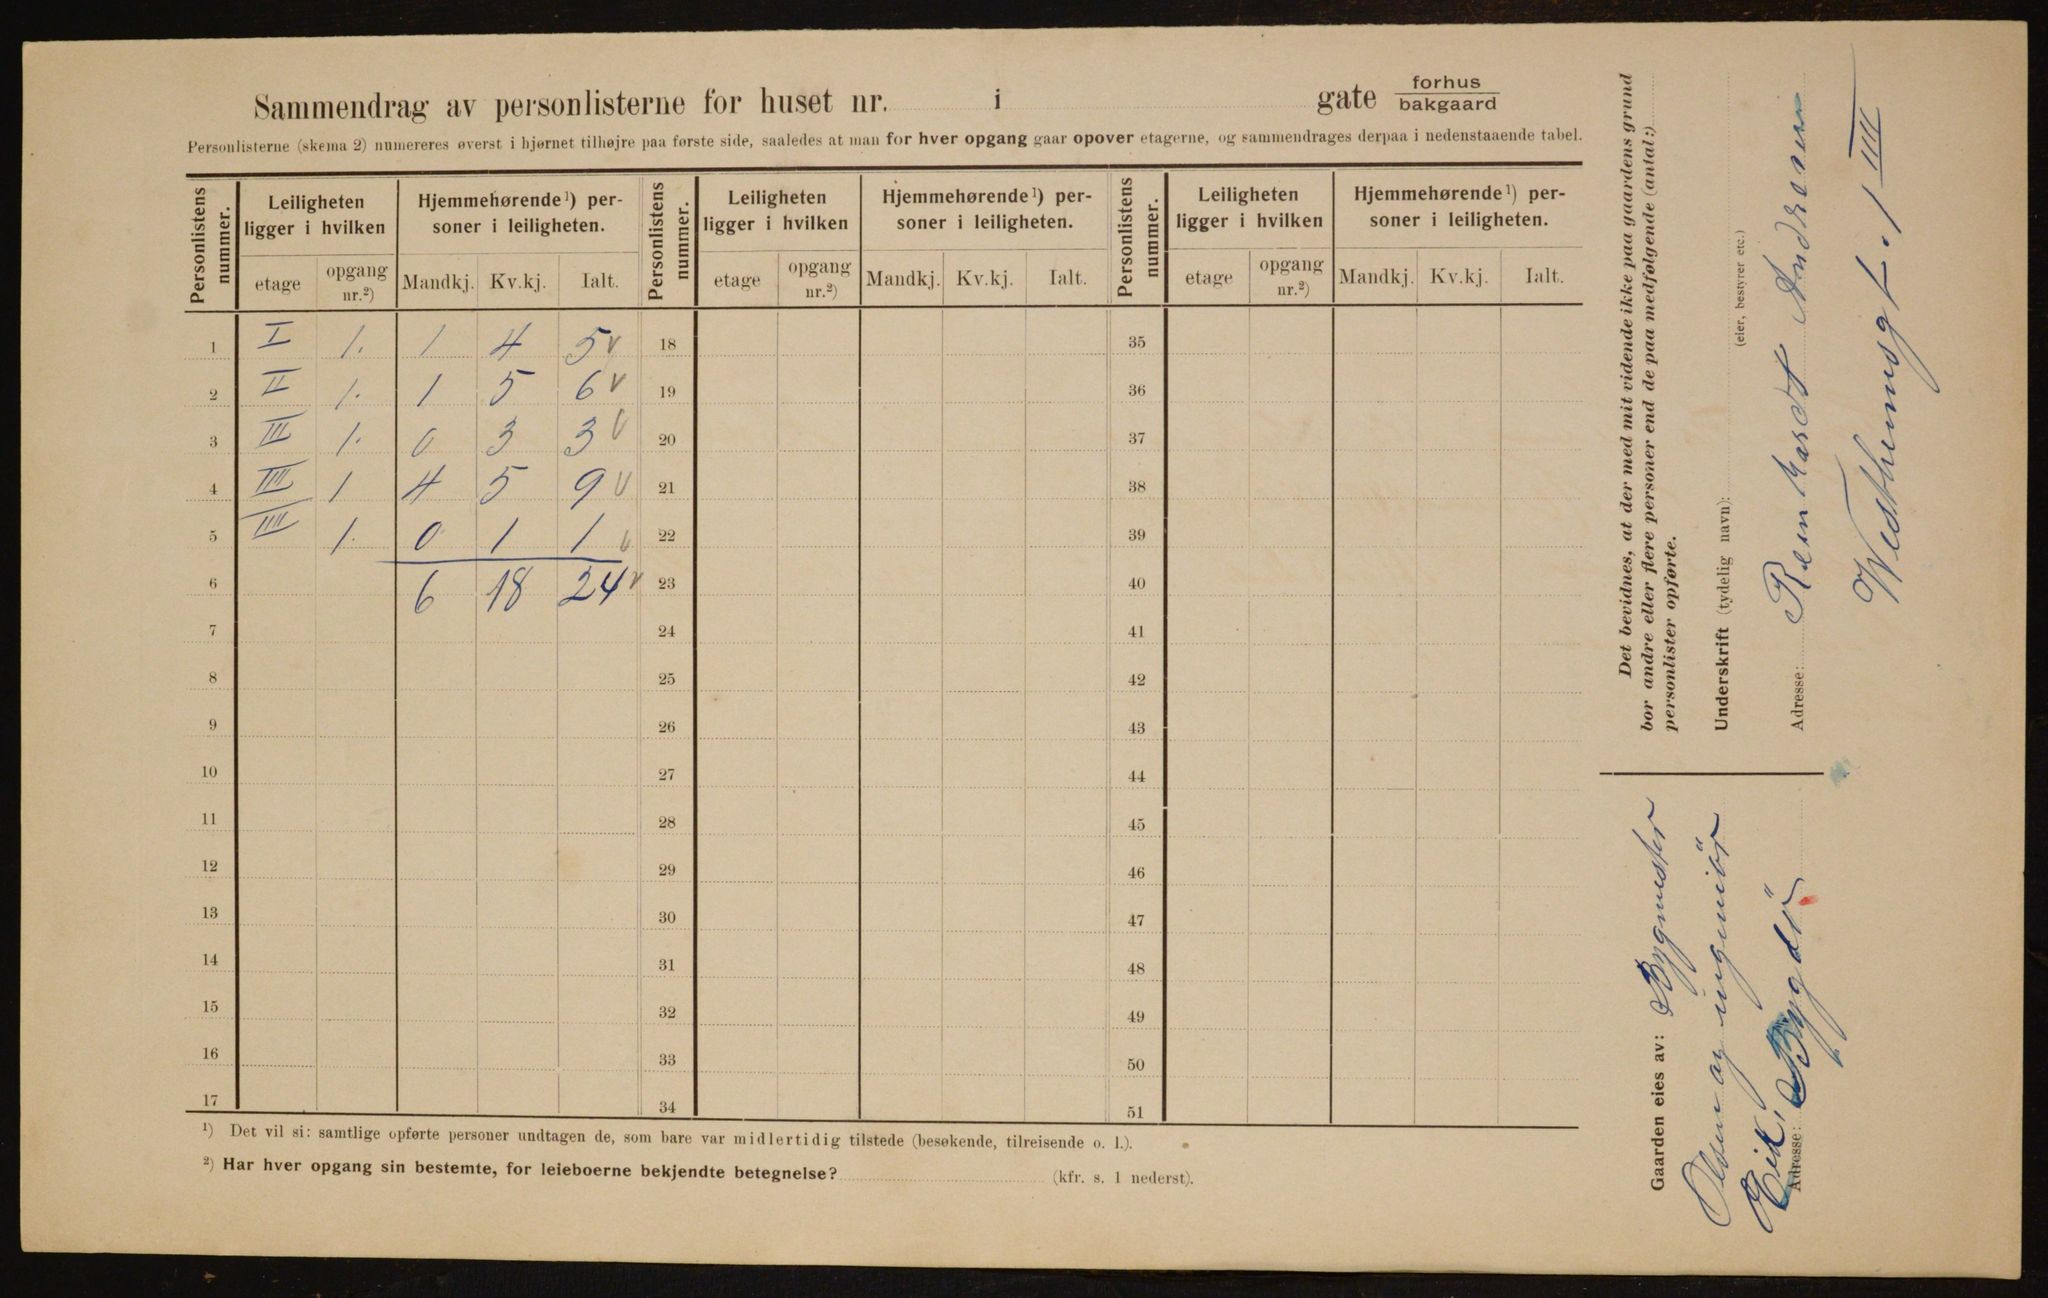 Sammendrag av personlisterne for huset nr. i gate forhus
bakgaard
Personlisterne (skema 2) numereres øverst i hjørnet tilhøjre paa første side, saaledes at man for hver opgang gaar opover etagerne, og sammendrages derpaa i nedenstaaende tabel.
Personlistens nummer. Leiligheten ligger i hvilken Hjemmehørende¹) personer i leiligheten. Personlistens nummer. Leiligheten ligger i hvilken Hjemmehørende¹) personer i leiligheten. Personlistens nummer. Leiligheten ligger i hvilken Hjemmehørende¹) personer i leiligheten.
etage opgang nr.²) Mandkj. Kv.kj. Ialt. etage opgang nr.²) Mandkj. Kv.kj. Ialt. etage opgang nr.²) Mandkj. Kv.kj. Ialt.
1 I 1. 1 4 5 v 18 35
2 II 1. 1 5 6 v 19 36
3 III 1. 0 3 3 v 20 37
4 IIII 1 4 5 9 v 21 38
5 IIII 1. 0 1 1 v 22 39
6 6 18 24 v 23 40
7 24 41
8 25 42
9 26 43
10 27 44
11 28 45
12 29 46
13 30 47
14 31 48
15 32 49
16 33 50
17 34 51
¹) Det vil si: samtlige opførte personer undtagen de, som bare var midlertidig tilstede (besøkende, tilreisende o. l.).
²) Har hver opgang sin bestemte, for leieboerne bekjendte betegnelse? (kfr. s. 1 nederst).
Det bevidnes, at der med mit vidende ikke paa gaardens grund
bor andre eller flere personer end de paa medfølgende (antal:)
personlister opførte.
Underskrift (tydelig navn):
(eier, bestyrer etc.)
Reinhardt Andresen
Adresse:
Westheimsgt. 1 IIII
Gaarden eies av: Bygmester
Olsen og ingeniör
Eik,
Adresse: Bygdö